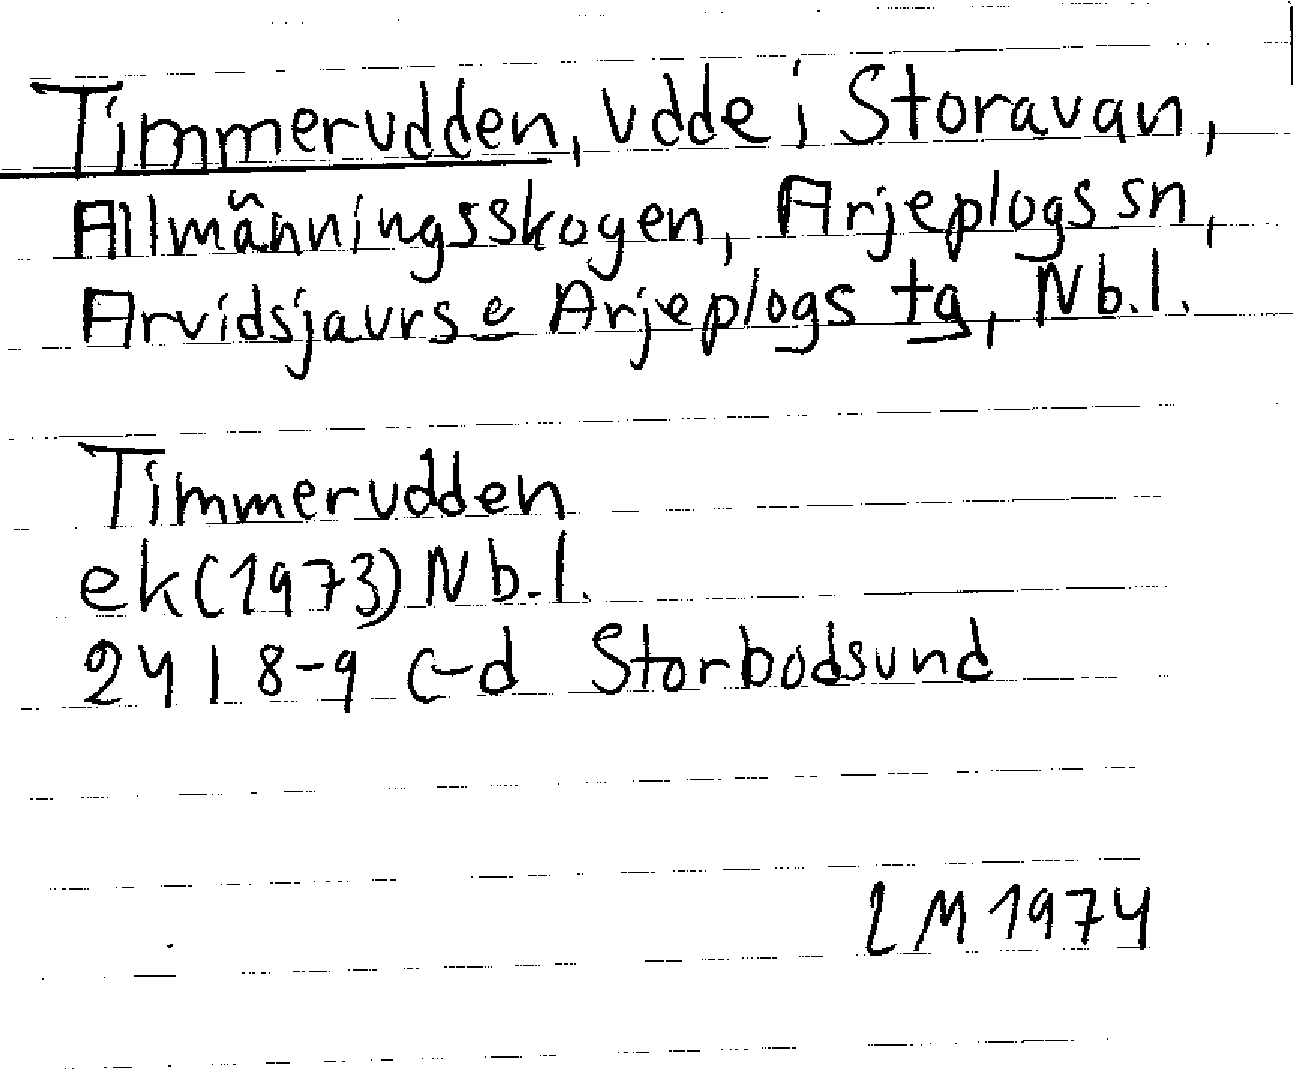 Timmerudden, udde i Storavan,
Allmänningsskogen, Arjeplogs sn,
Arvidsjaurs e Arjeplogs tg, Nb.l.
Timmerudden
ek (1973) Nb.l.
24 I 8-9 c-d Storbodsund
LM 1974